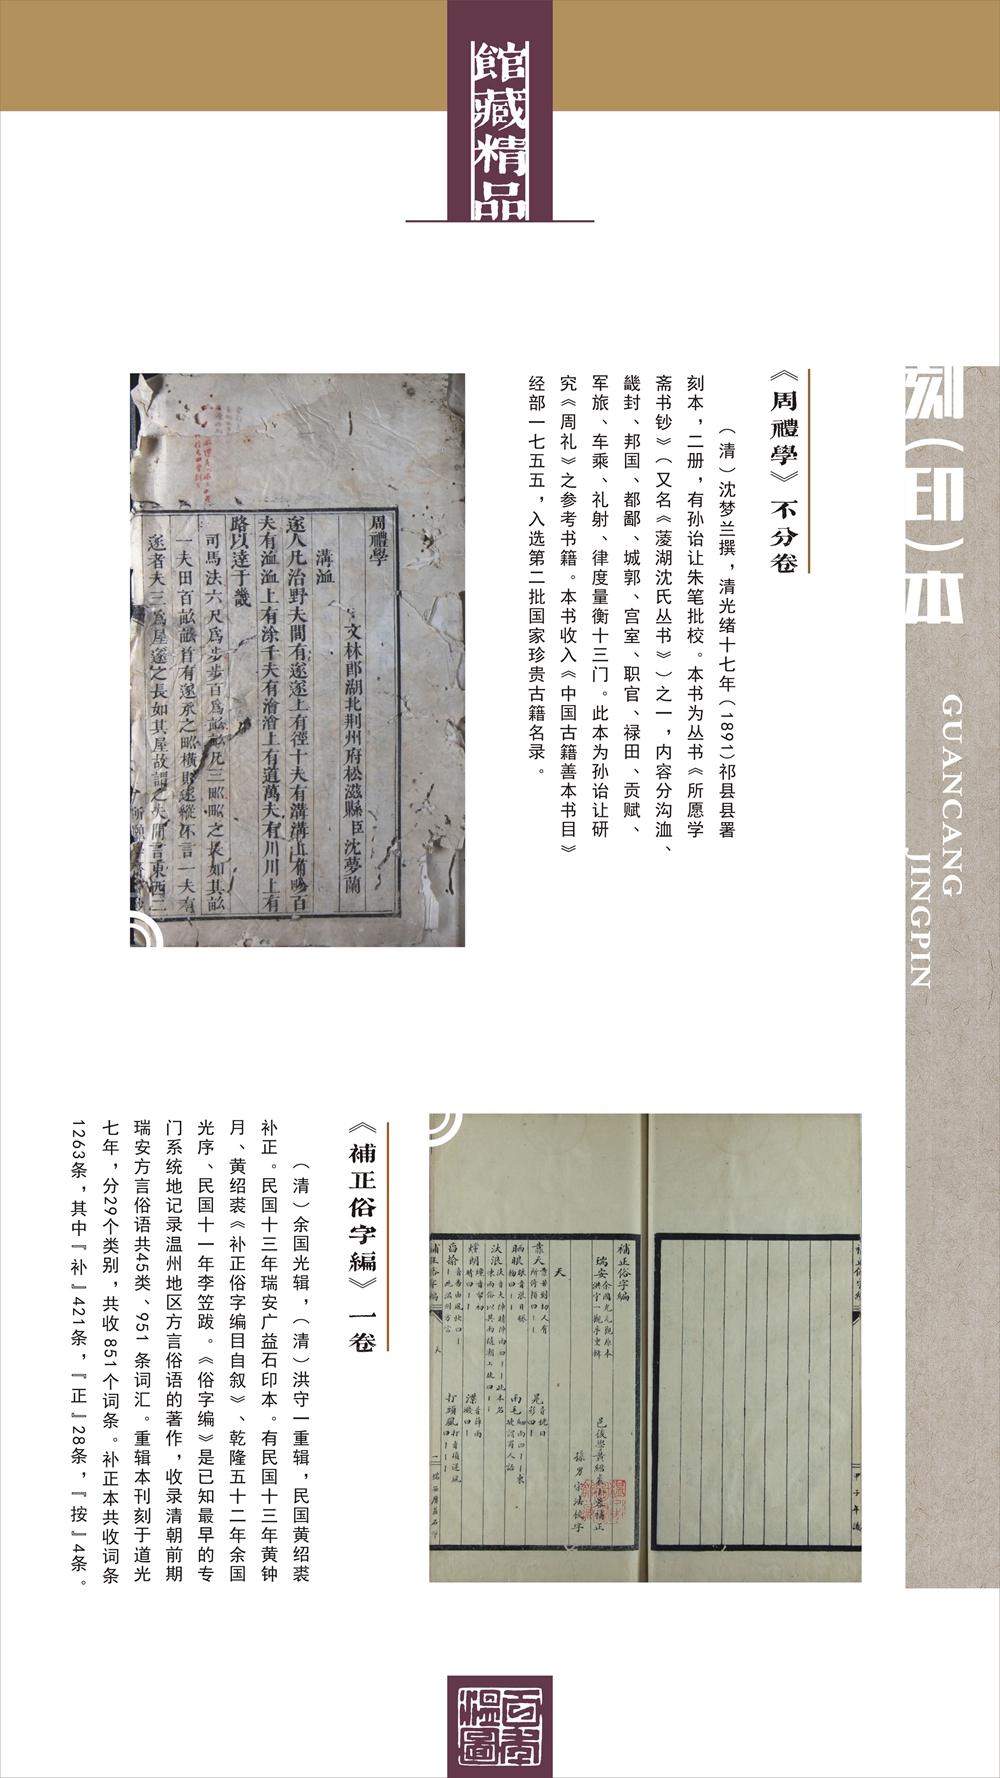 館藏精品
刻（印）本
GUANCANG
JINGPIN
《周禮學》不分卷
（清）沈梦兰撰，清光绪十七年（1891）祁县县署
刻本，二册，有孙诒让朱笔批校。本书为丛书《所愿学
斋书钞》（又名《菱湖沈氏丛书》）之一，内容分沟洫、
畿封、邦国、都鄙、城郭、宫室、职官、禄田、贡赋、
军旅、车乘、礼射、律度量衡十三门。此本为孙诒让研
究《周礼》之参考书籍。本书收入《中国古籍善本书目》
经部一七五五，入选第二批国家珍贵古籍名录。
周禮學
文林郎湖北荆州府松滋縣臣沈夢蘭
溝洫
遂人凡治野夫間有遂遂上有徑十夫有溝溝上有畛百
夫有洫洫上有涂千夫有澮澮上有道萬夫有川川上有
路以達于畿
司馬法六尺爲步步百爲畝畝凡三畎畎之長如其畝
一夫田百畝畝首有遂承之畎橫則遂縱不言一夫有
遂者夫三爲屋遂之長如其屋故謂之夫間言東西二
補正俗字編
瑞安
余國光元觀原本
洪守一觀序重輯
邑後學黃紹裘菉蓀補正
孫男宗法校字
天
甲子年
《補正俗字編》一卷
（清）余国光辑，（清）洪守一重辑，民国黄绍裘
补正。民国十三年瑞安广益石印本。有民国十三年黄钟
月、黄绍裘《补正俗字编目自叙》、乾隆五十二年余国
光序、民国十一年李笠跋。《俗字编》是已知最早的专
门系统地记录温州地区方言俗语的著作，收录清朝前期
瑞安方言俗语共45类、951条词汇。重辑本刊刻于道光
七年，分29个类别，共收851个词条。补正本共收词条
1263条，其中『补』421条，『正』28条，『按』4条。